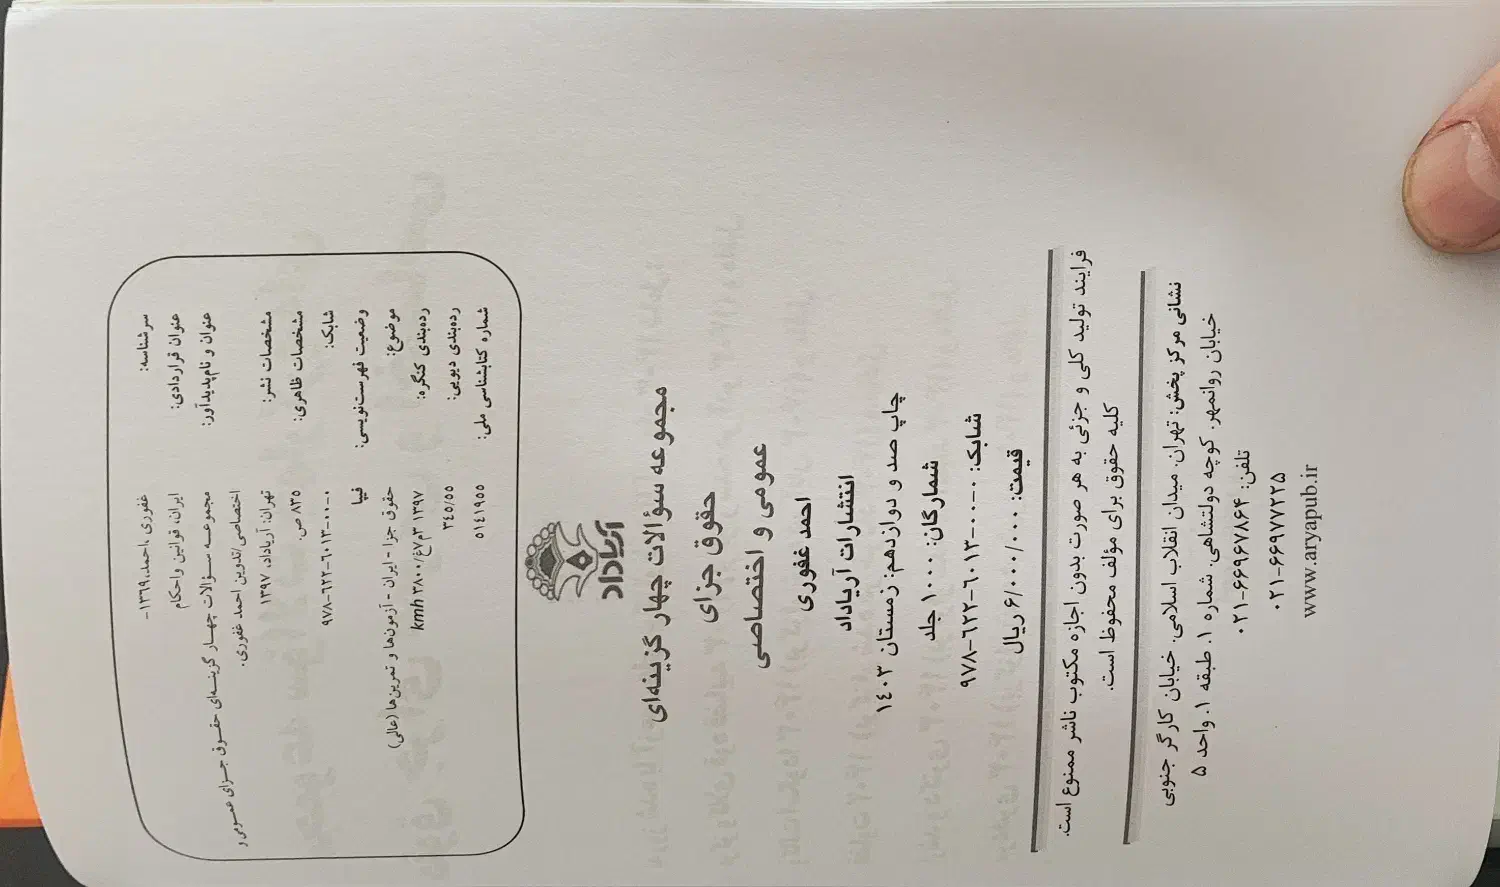 سرشناسه: غفوری ،احمد،۱۳٦۹-
عنوان قراردادی: ایران، قوانین واحکام
عنوان و نام‌پدیدآور: مجموعه سؤالات چهار گزینه‌ای حقوق جزای عمومی و
اختصاصی/تدوین احمد غفوری.
مشخصات نشر: تهران: آریاداد، ۱۳۹۷
مشخصات ظاهری: ۸۳۵ ص.
شابک: ۹۷۸-٦۲۲-٦۰۱۳-۰۰-۰
وضعیت فهرست‌نویسی: فیپا
موضوع: حقوق جزا - ایران - آزمون‌ها و تمرین‌ها (عالی)
رده‌بندی کنگره: ۱۳۹۷ ۳م۷غ/kmh ۳۸۰۰
رده‌بندی دیویی: ۳٤٥/٥٥
شماره کتابشناسی ملی: ٥۱٤۱۹٥٥
آریاداد
مجموعه سؤالات چهار گزینه‌ای
حقوق جزای
عمومی و اختصاصی
احمد غفوری
انتشارات آریاداد
چاپ صد و دوازدهم: زمستان ۱٤۰۳
شمارگان: ۱۰۰۰ جلد
شابک: ۰-۰۰-٦۰۱۳-٦۲۲-۹۷۸
قیمت: ۶/۰۰۰/۰۰۰ ریال
فرایند تولید کلی و جزئی به هر صورت بدون اجازه مکتوب ناشر ممنوع است.
کلیه حقوق برای مؤلف محفوظ است.
نشانی مرکز پخش: تهران. میدان انقلاب اسلامی. خیابان کارگر جنوبی
خیابان روانمهر. کوچه دولتشاهی. شماره ۱. طبقه ۱. واحد ۵
تلفن: ۶۶۹۶۷۸۶۴-۰۲۱
۰۲۱-۶۶۹۷۷۲۲۵
www.aryapub.ir